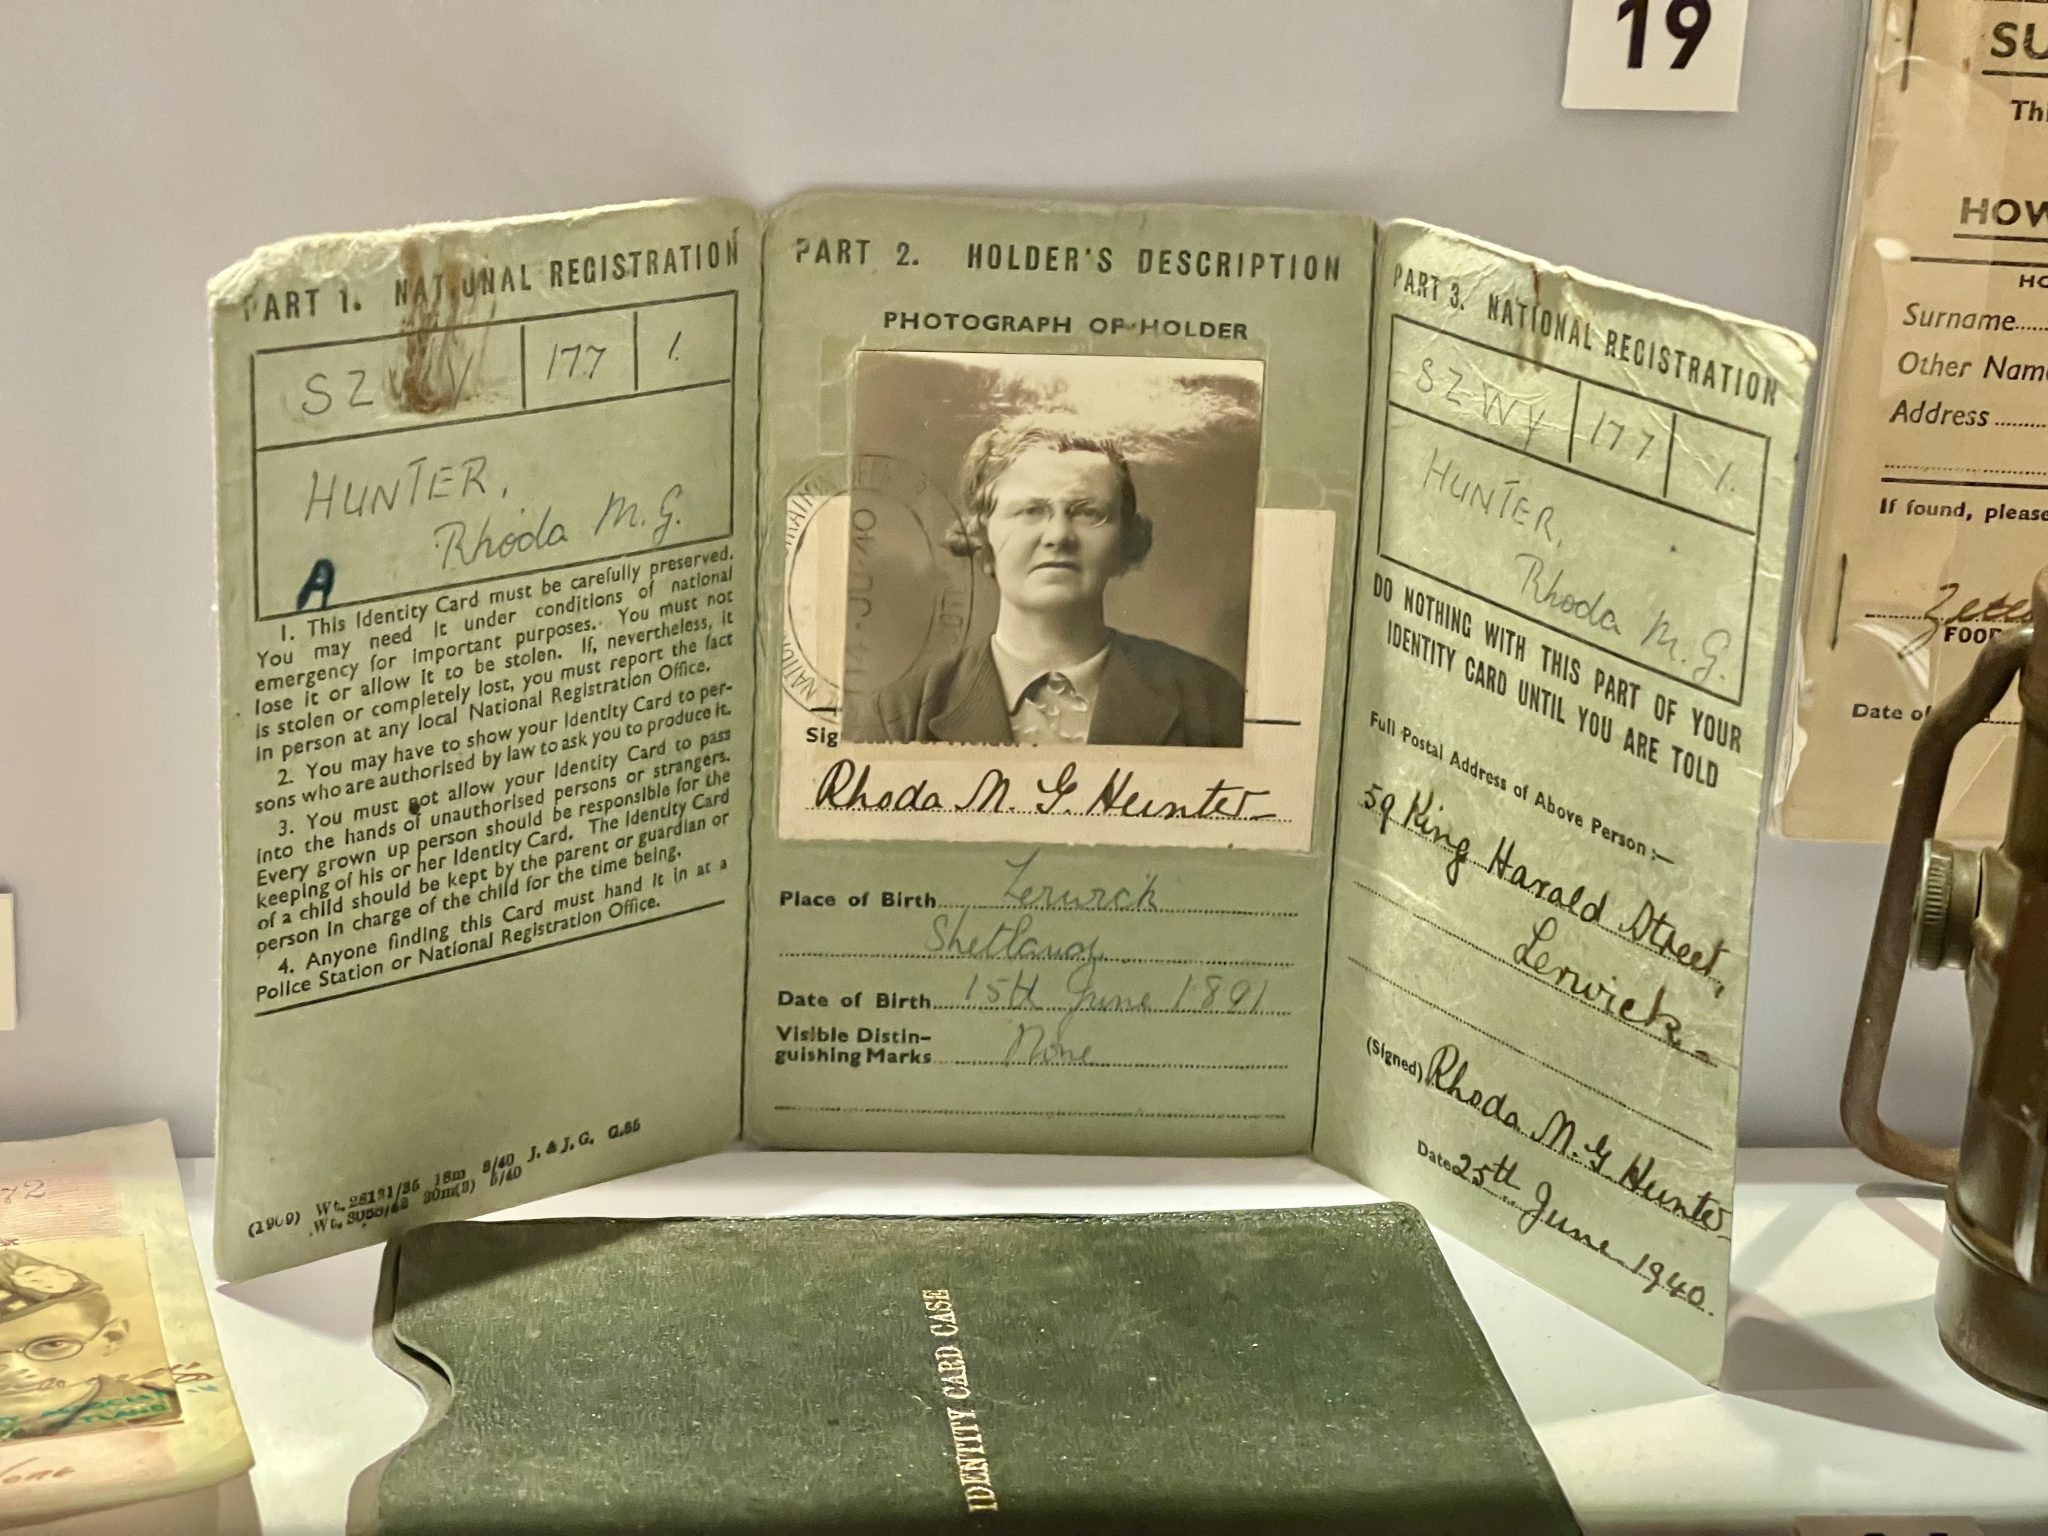 19
PART 1. NATIONAL REGISTRATION
SZ 177 1.
HUNTER,
Rhoda M. G.
A
1. This Identity Card must be carefully preserved.
You may need it under conditions of national
emergency for important purposes. You must not
lose it or allow it to be stolen. If, nevertheless, it
is stolen or completely lost, you must report the fact
in person at any local National Registration Office.
2. You may have to show your Identity Card to per-
sons who are authorised by law to ask you to produce it.
3. You must not allow your Identity Card to pass
into the hands of unauthorised persons or strangers.
Every grown up person should be responsible for the
keeping of his or her Identity Card. The Identity Card
of a child should be kept by the parent or guardian or
person in charge of the child for the time being.
4. Anyone finding this Card must hand it in at a
Police Station or National Registration Office.
J. & J. G. G.55
PART 2. HOLDER'S DESCRIPTION
PHOTOGRAPH OF HOLDER
JU 40
Rhoda M. G. Hunter
Place of Birth Lerwick
Shetland
Date of Birth 15th June 1891
Visible Distin-
guishing Marks None
PART 3. NATIONAL REGISTRATION
SZWY 177 1.
HUNTER,
Rhoda M. G.
DO NOTHING WITH THIS PART OF YOUR
IDENTITY CARD UNTIL YOU ARE TOLD
Full Postal Address of Above Person:—
59 King Harald Street,
Lerwick
(Signed) Rhoda M. G Hunter
Date 25th June 1940.
IDENTITY CARD CASE
SU
Thi
HOW
HO
Surname
Other Nam
Address
If found, please
FOOD
Date of